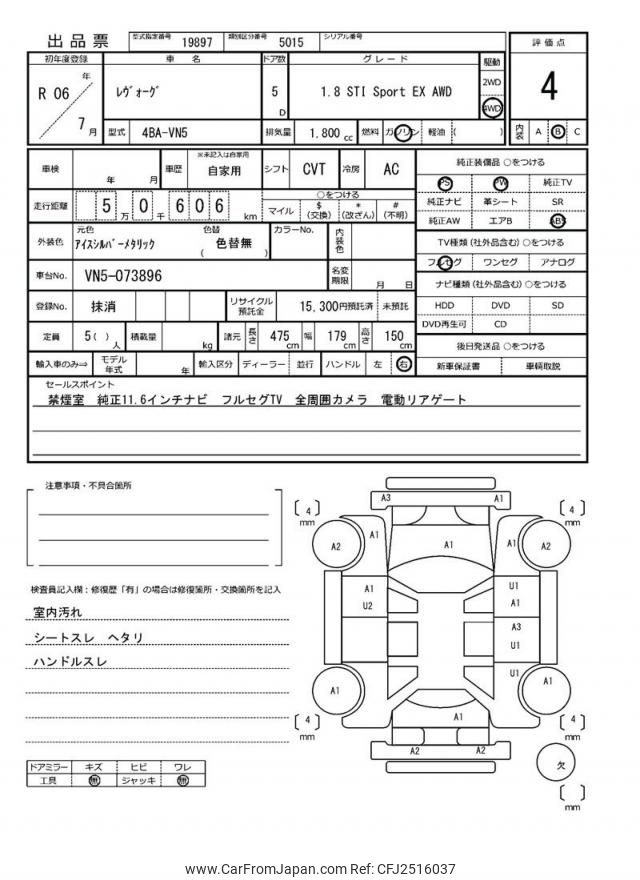 出品票
型式指定番号 19897 類別区分番号 5015 シリアル番号
初年度登録 車名 ドア数 グレード 駆動 評価点
R 06 年 7 月
レヴォーグ 5 D 1.8 STI Sport EX AWD 2WD 4WD
4
型式 4BA-VN5 排気量 1,800 cc 燃料 ガソリン 軽油 ( ) 内装 A B C
車検 年 月 車歴 ※未記入は自家用 自家用 シフト CVT 冷房 AC
走行距離 5 万 0 千 6 0 6 km ○をつける
マイル $ (交換) * (改ざん) # (不明)
外装色 元色 アイスシルバーメタリック 色替 ( 色替無 ) カラーNo. 内装色
車台No. VN5-073896 名変期限 月 日
登録No. 抹消 リサイクル預託金 15,300円預託済 未預託
定員 5( ) 人 積載量 kg 諸元 長さ 475 cm 幅 179 cm 高さ 150 cm
輸入車のみ⇒ モデル年式 年 輸入区分 ディーラー 並行 ハンドル 左 右
純正装備品 ○をつける
PS PW 純正TV
純正ナビ 革シート SR
純正AW エアB ABS
TV種類(社外品含む)○をつける
フルセグ ワンセグ アナログ
ナビ種類(社外品含む)○をつける
HDD DVD SD
DVD再生可 CD
後日発送品 ○をつける
新車保証書 車輌取説
セールスポイント
禁煙室 純正11.6インチナビ フルセグTV 全周囲カメラ 電動リアゲート
注意事項・不具合箇所
検査員記入欄:修復歴「有」の場合は修復箇所・交換箇所を記入
室内汚れ
シートスレ ヘタリ
ハンドルスレ
ドアミラー キズ ヒビ ワレ
工具 無 ジャッキ 無
A3 A1
4 mm 4 mm
A2 A1 A1 A1 A2
A1 U1
U2 A1
A3
U1
U1
A1 A1
A1
4 mm 4 mm
A2 A2
欠
mm
www.CarFromJapan.com Ref: CFJ2516037